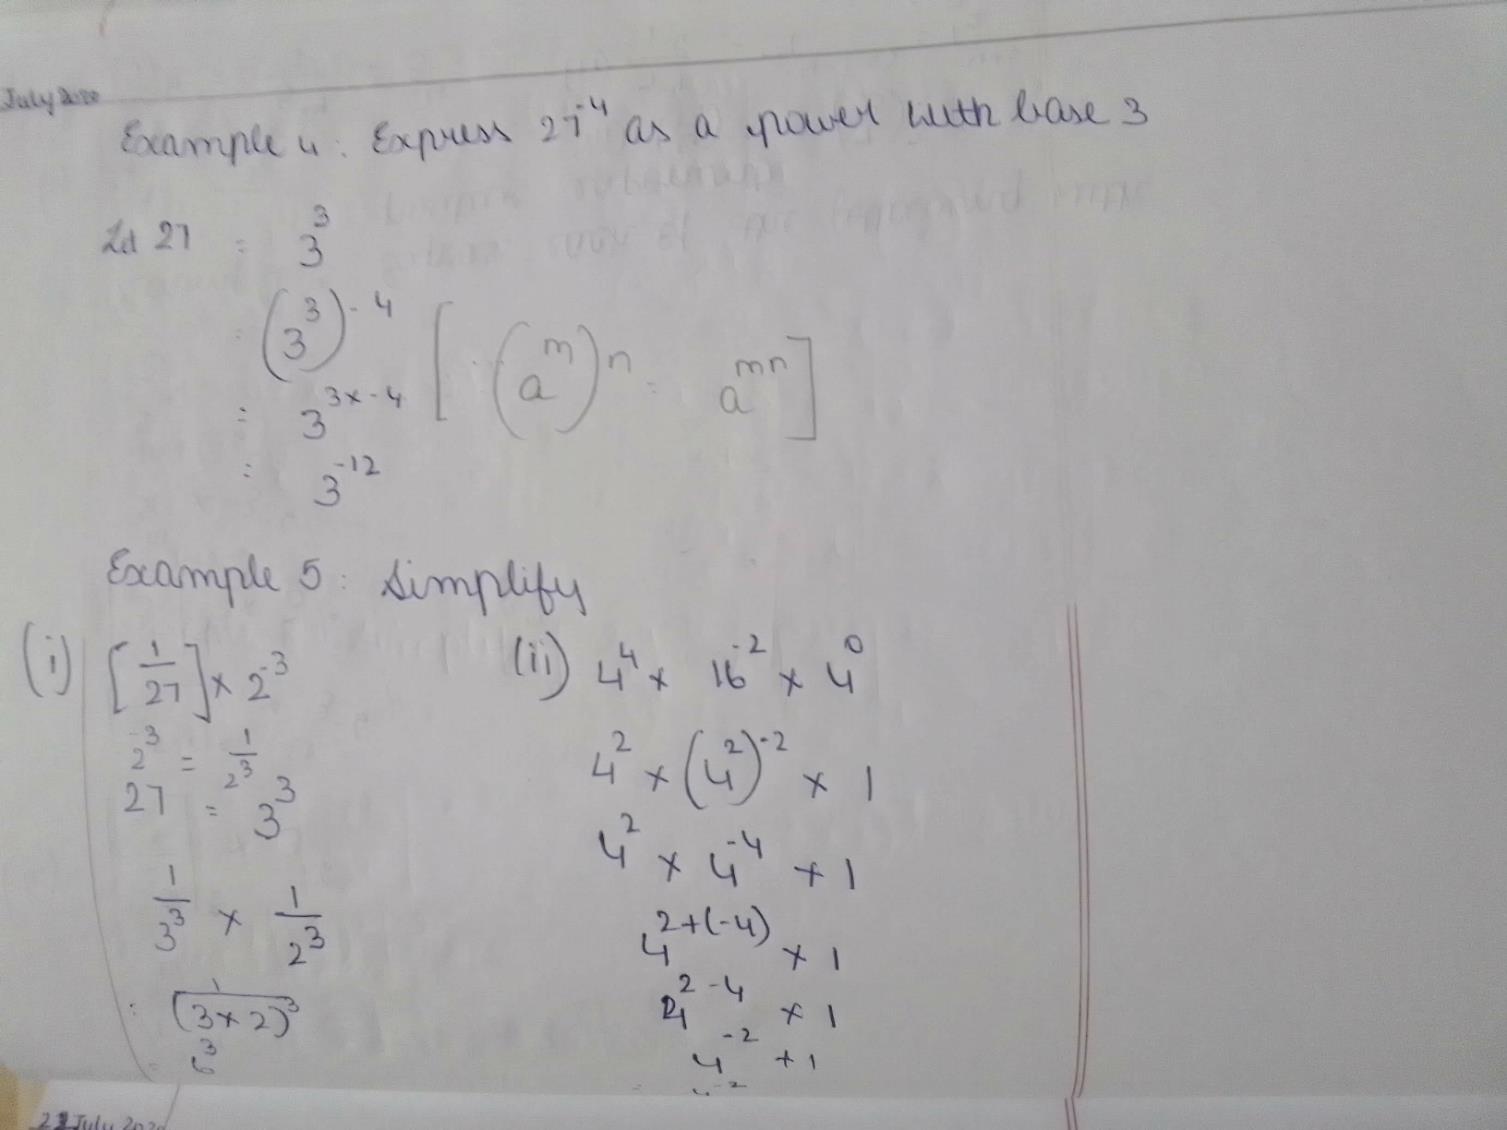 July 2020
Example 4: Express 27⁻⁴ as a power with base 3
27 = 3³
= (3³)⁻⁴ [∴ (aᵐ)ⁿ = aᵐⁿ]
= 3³ˣ⁻⁴
= 3⁻¹²
Example 5: Simplify
(i) [1/27] x 2⁻³
2⁻³ = 1/2³
27 = 3³
1/3³ x 1/2³
= 1/(3x2)³
= 6³
(ii) 4⁴ x 16⁻² x 4⁰
4² x (4²)⁻² x 1
4² x 4⁻⁴ x 1
4²⁺⁽⁻⁴⁾ x 1
4²⁻⁴ x 1
4⁻² x 1
= 4⁻²
22 July 2020